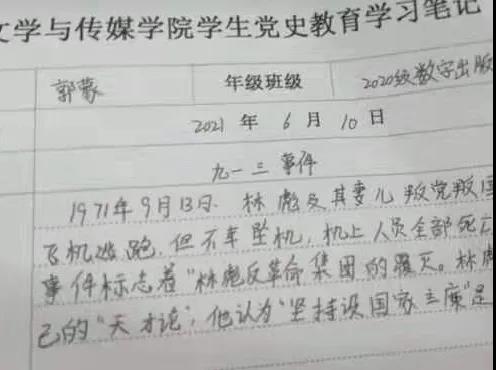 文学与传媒学院学生党史教育学习笔记
郭蒙 年级班级 2020级数字出版
2021 年 6 月 10 日
九一三事件
1971年9月13日. 林彪及其妻儿叛党叛国
飞机逃跑,但不幸坠机,机上人员全部死亡
事件标志着"林彪反革命集团的覆灭。林彪
己的"天才论",他认为"坚持设国家主席"是